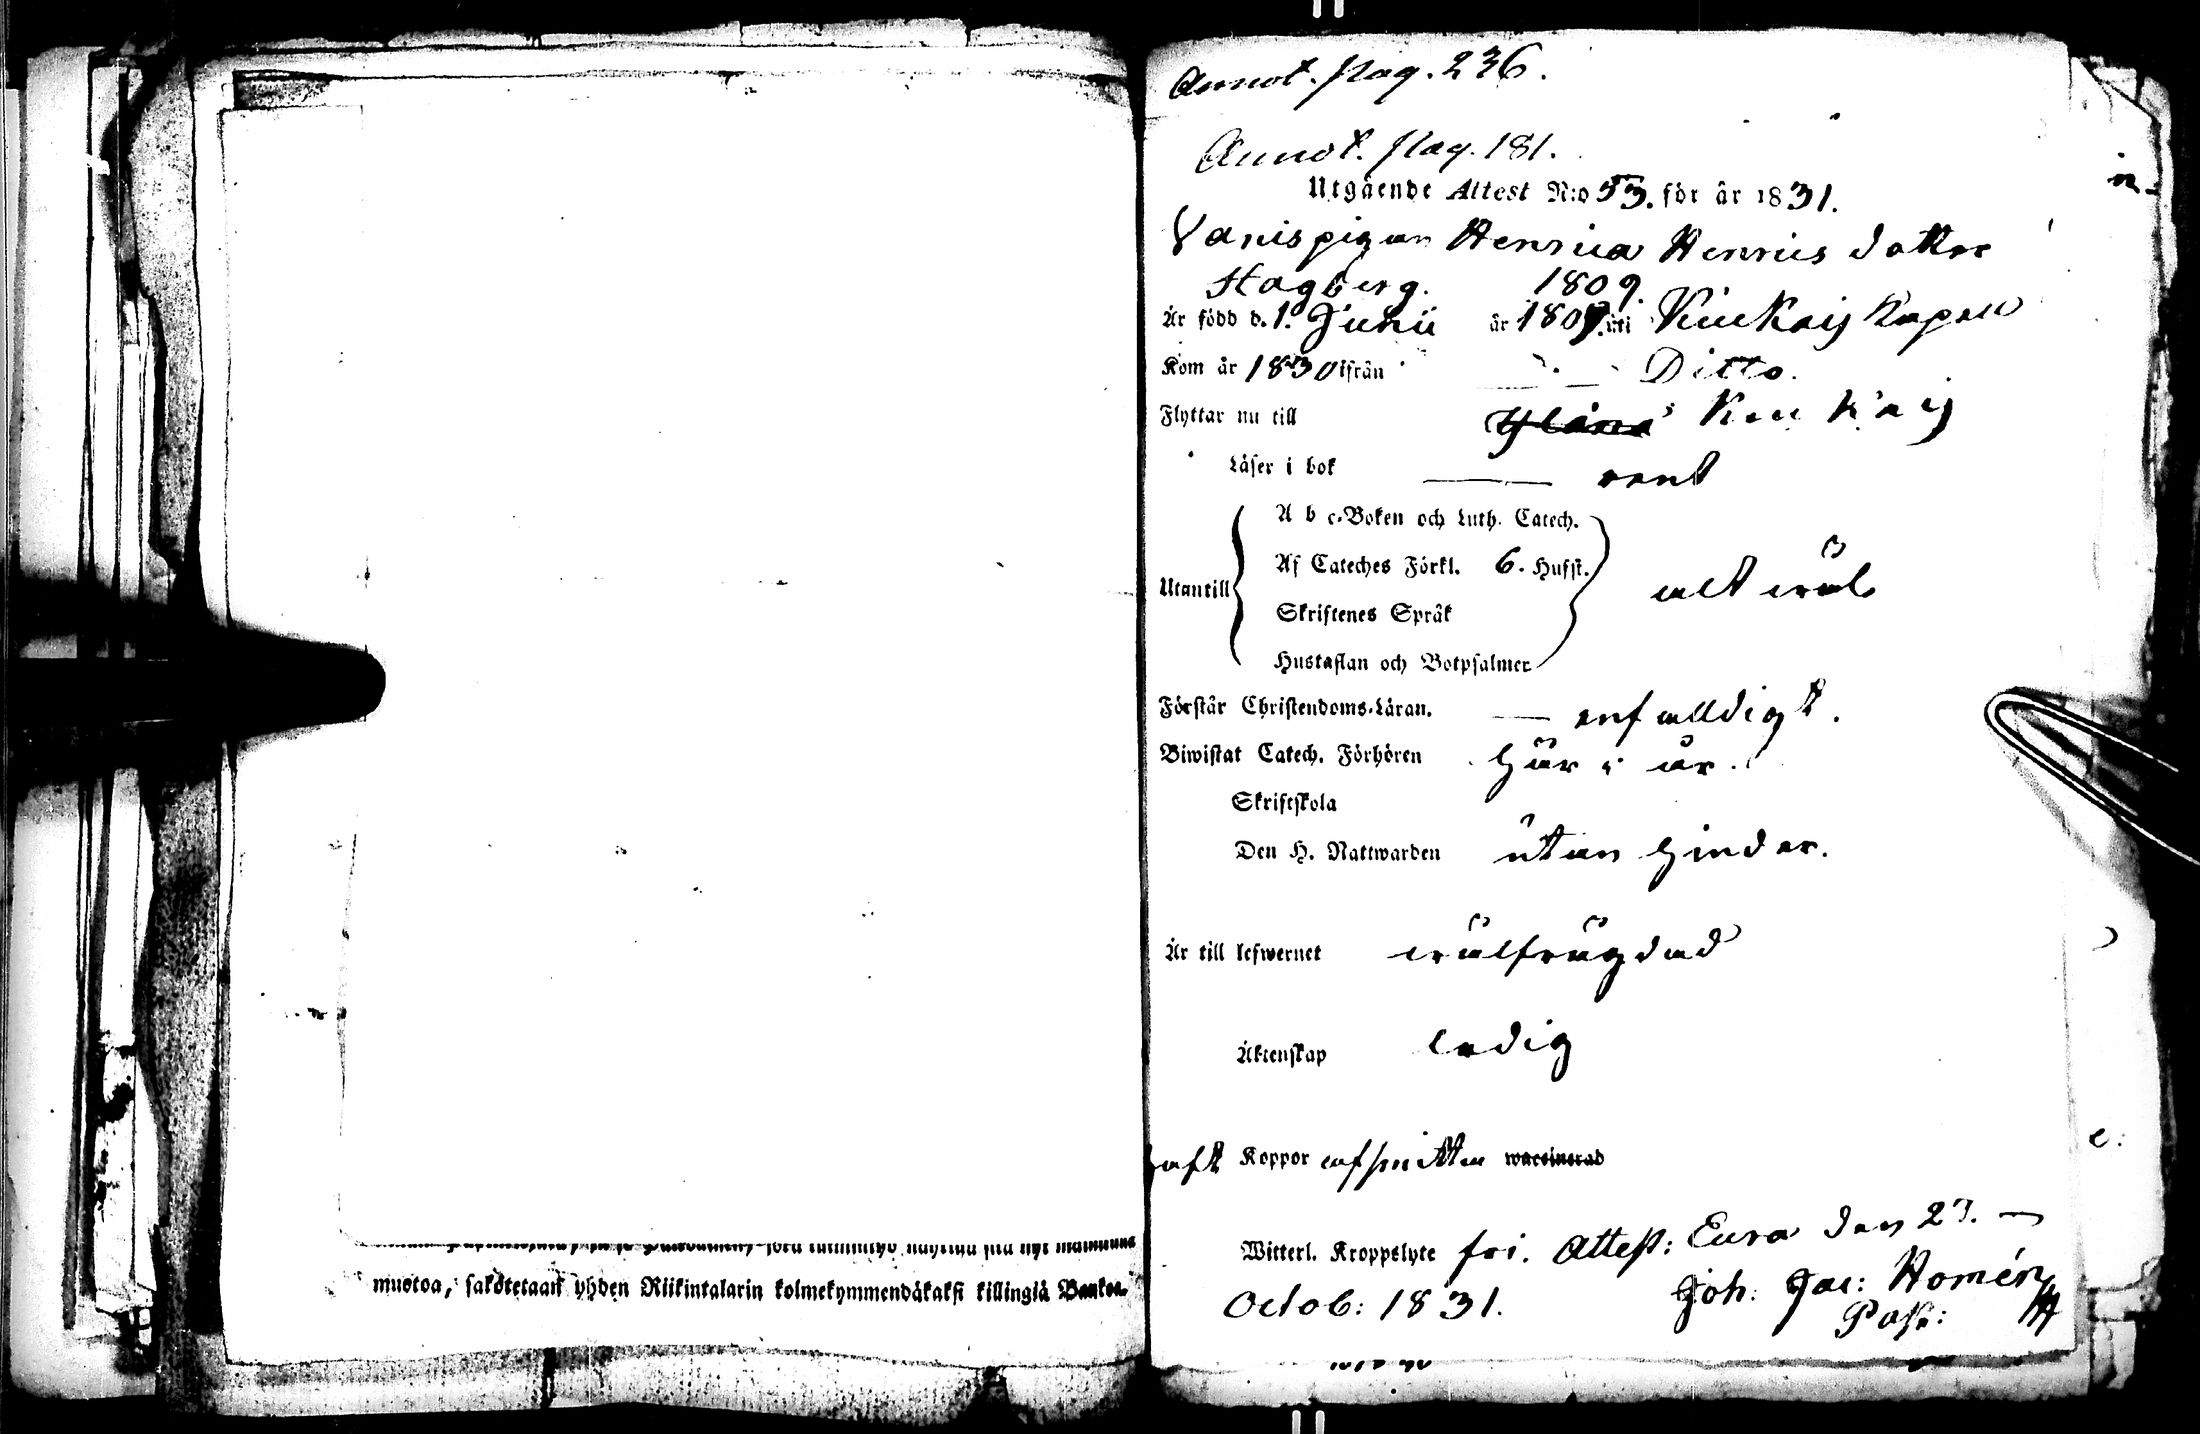 muotoa, sakotetaan yhden Riikintalarin kolmekymmendäkaksi killingiä Banko-
Annot. pag. 236.
Annot. pag. 181.
Utgående Attest N:o 53. för år 1831.
Spinspigan Henrica Henricsdotter
Hagberg. 1809.
Är född d. 1. Junii år 1809. uti Kiukais Kapell
Kom år 1830 ifrån — Ditto.
Flyttar nu till Yläne Kiukais
Läser i bok — rent
A b c-Boken och Luth. Catech.
Af Cateches Förkl. 6. Hufst.
Utantill
Skriftenes Språk
Hustaflan och Botpsalmer
alt wäl
Förstår Christendoms-Läran. — enfaldigt.
Biwistat Catech. Förhören här i år.
Skriftskola
Den H. Nattwarden utan hinder.
Är till lefwernet wälfrägdad
Äktenskap ledig
haft Koppor af smitta waccinerad
Witterl. Kroppslyte fri. Attest: Eura den 23. —
Octob: 1831. Joh: Jac: Homén
Past: